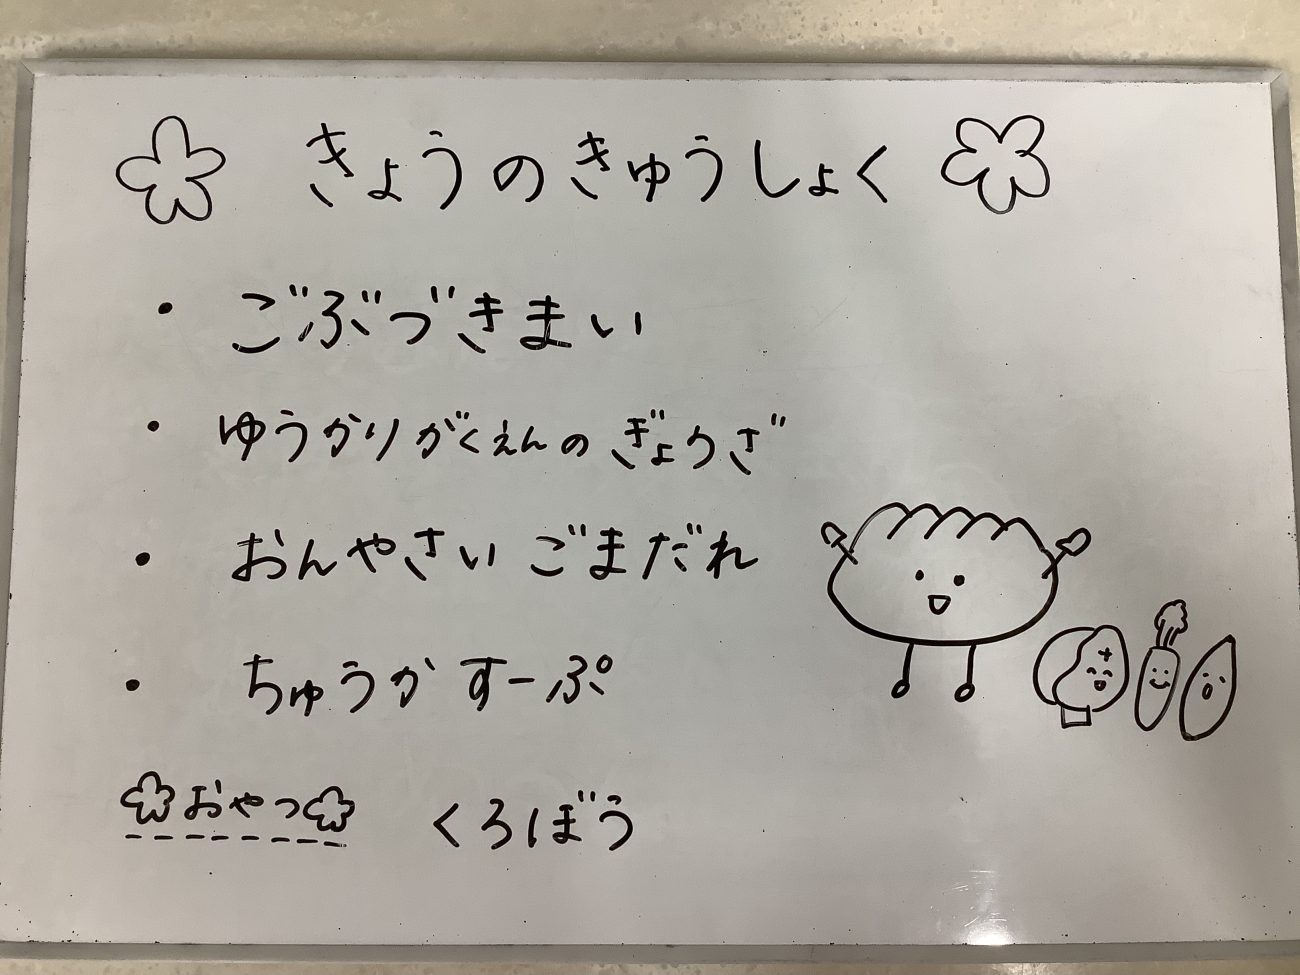 きょうのきゅうしょく
・ごぶづきまい
・ゆうかりがくえんのぎょうざ
・おんやさい ごまだれ
・ちゅうかすーぷ
おやつ くろぼう